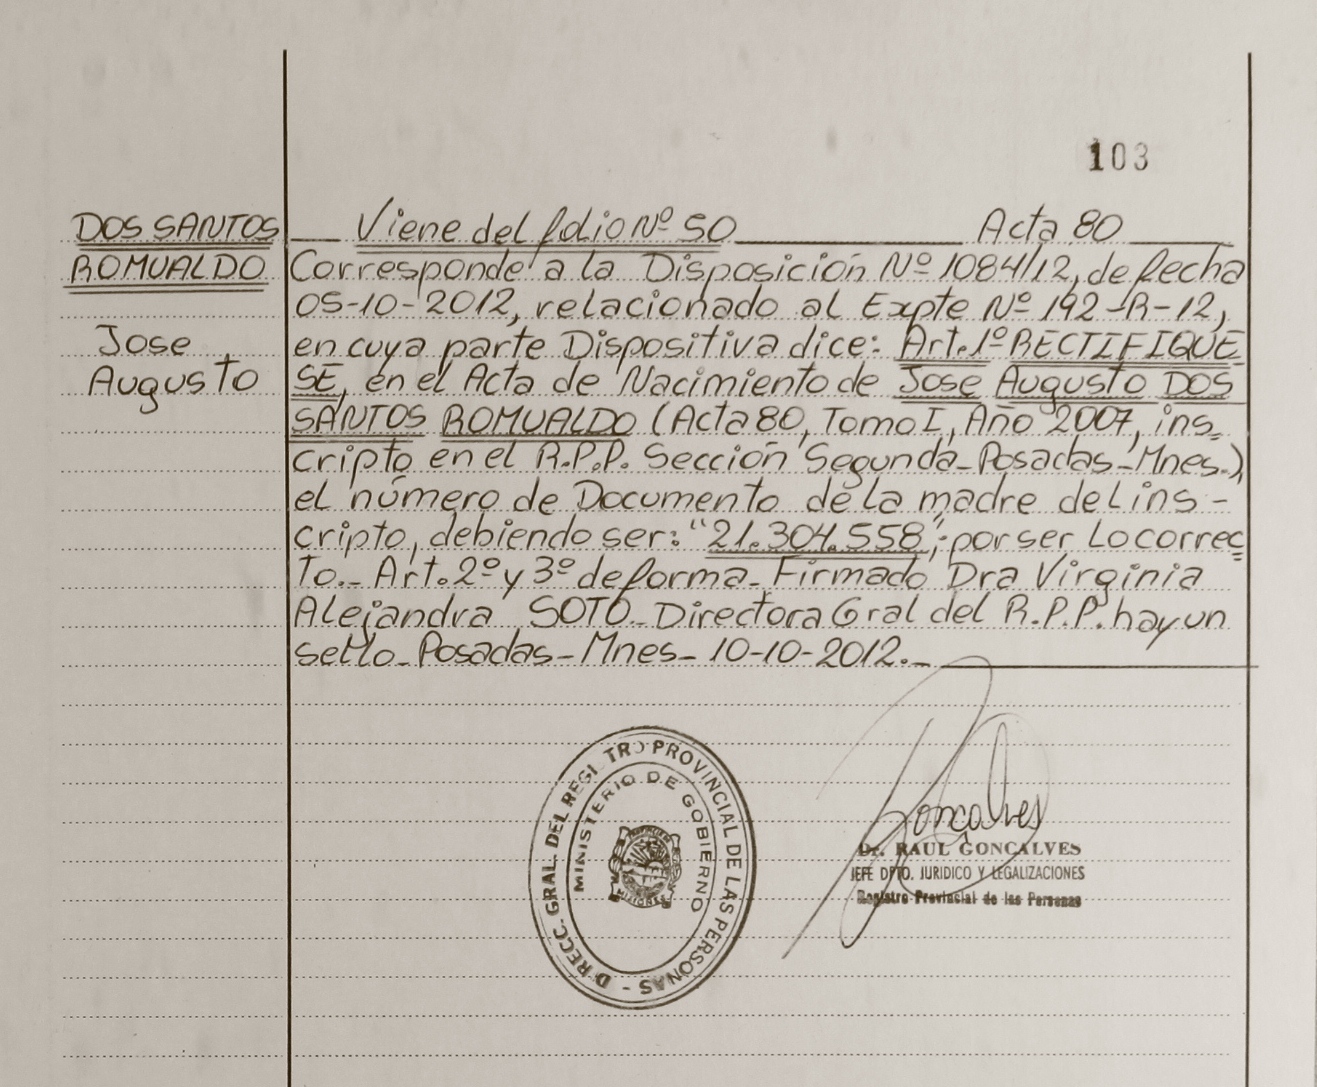 103
DOS SANTOS
ROMUALDO
Jose
Augusto
Viene del folio Nº 50 Acta 80
Corresponde a la Disposición Nº 1084/12, de fecha
05-10-2012, relacionado al Expte Nº 192-R-12,
en cuya parte Dispositiva dice: Art. 1º RECTIFIQUE
SE, en el Acta de Nacimiento de Jose Augusto DOS
SANTOS ROMUALDO (Acta 80, Tomo I, Año 2007, ins=
cripto en el R.P.P. Sección Segunda-Posadas-Mnes.),
el número de Documento de la madre del ins-
cripto, debiendo ser: "21.304.558", por ser lo correc=
to.- Art. 2º y 3º de forma- Firmado Dra Virginia
Alejandra SOTO- Directora Gral del R.P.P. hay un
sello- Posadas-Mnes- 10-10-2012.-
DRECC. GRAL. DEL REGISTRO PROVINCIAL DE LAS PERSONAS -
MINISTERIO DE GOBIERNO
MISIONES
Gonçalves
Dr. RAUL GONCALVES
JEFE DPTO. JURIDICO Y LEGALIZACIONES
Registro Provincial de las Personas